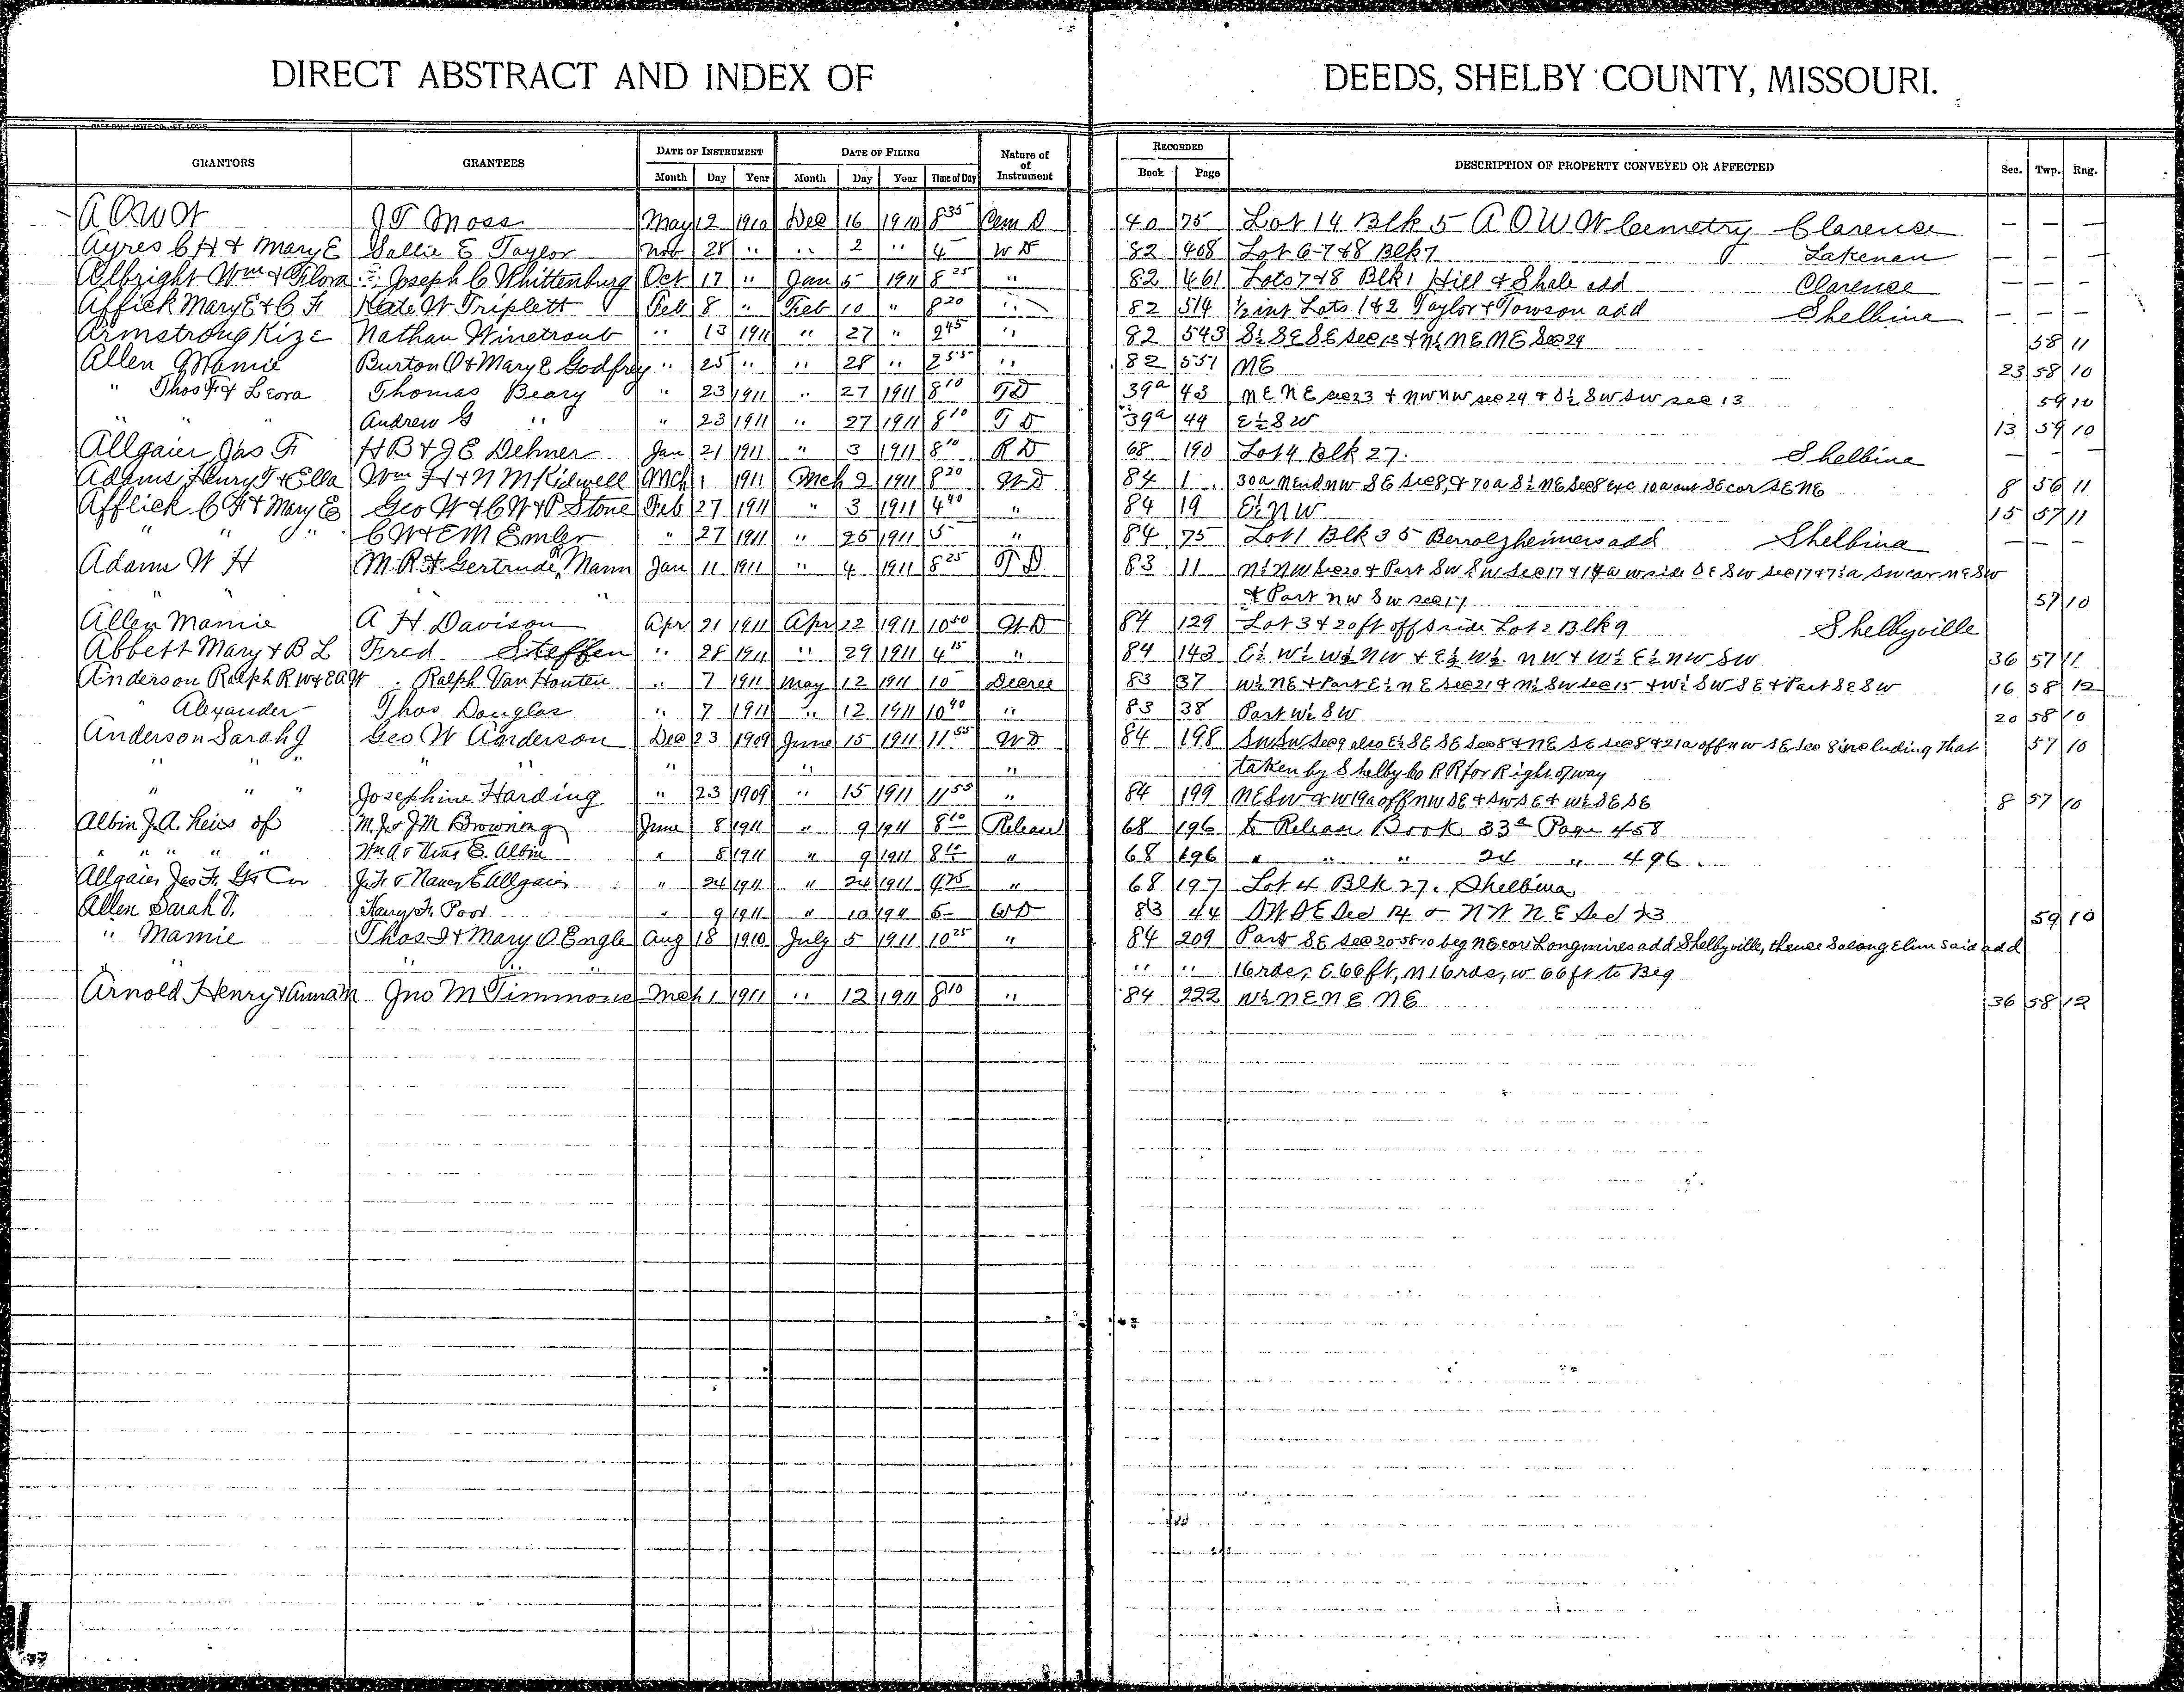 DIRECT ABSTRACT AND INDEX OF DEEDS, SHELBY COUNTY, MISSOURI.
GRANTORS GRANTEES DATE OF INSTRUMENT DATE OF FILING Nature of of Instrument RECORDED DESCRIPTION OF PROPERTY CONVEYED OR AFFECTED Sec. Twp. Rng.
Month Day Year Month Day Year Time of Day Book Page
A O U W J T Moss May 12 1910 Dec 16 1910 8 35 Cem D 40 75 Lot 14 Blk 5 A O U W Cemetry Clarence — — —
Ayres C H & Mary E Sallie E Taylor Nov 28 " " 2 " 4 W D 82 408 Lot 6-7 & 8 Blk 7 Lakenan — — —
Albright Wm & Flora Joseph C Whittenburg Oct 17 " Jan 5 1911 8 25 " 82 461 Lots 7 & 8 Blk 1 Hill & Shale add Clarence — — —
Affick Mary E & C F Kate W Triplett Feb 8 " Feb 10 " 8 20 " 82 514 ½ int Lots 1 & 2 Taylor & Towson add Shelbina — — —
Armstrong Kize Nathan Winetroub " 13 1911 " 27 " 9 45 " 82 543 S½ SE SE Sec 13 & N½ NE NE Sec 24 58 11
Allen Mamie Burton O & Mary E Godfrey " 25 " " 28 " 2 55 " 82 551 NE 23 58 10
" Thos F & Leora Thomas Beary " 23 1911 " 27 1911 8 10 T D 39a 43 NE NE sec 23 & NW NW sec 24 & S½ SW SW sec 13 59 10
" " Andrew G " " 23 1911 " 27 1911 8 10 T D 39a 44 E½ SW 13 59 10
Allgaier Jas F H B & J E Dehner Jan 21 1911 " 3 1911 8 10 R D 68 190 Lot 4 Blk 27. Shelbina — — —
Adams Henry T & Ella Wm H & N M Kidwell Mch 1 1911 Mch 2 1911 8 20 W D 84 1 30a NEnd NW SE Sec 8, & 70a S½ NE Sec 8 exc 10a out SE cor SE NE 8 56 11
Afflick C F & Mary E Geo W & C W & P Stone Feb 27 1911 " 3 1911 4 40 " 84 19 E½ NW 15 57 11
" " " C W & E M Emler " 27 1911 " 25 1911 5 " 84 75 Lot 1 Blk 35 Berrolzheimers add Shelbina — — —
Adams W H M. R & Gertrude Mann Jan 11 1911 " 4 1911 8 25 T D 83 11 N½ NW Sec 20 & Part SW SW Sec 17 & 14a W side SE SW Sec 17 & 7½a SW cor NE SW
" " " & Part NW SW sec 17 57 10
Allen Mamie A H Davison Apr 21 1911 Apr 22 1911 10 50 W D 84 129 Lot 3 & 20 ft off S side Lot 2 Blk 9 Shelbyville
Abbett Mary & B L Fred Steffen " 28 1911 " 29 1911 4 15 " 84 143 E½ W½ W½ NW & E½ W½ NW & W½ E½ NW SW 36 57 11
Anderson Ralph R W & E A W Ralph Van Houten " 7 1911 May 12 1911 10 Decree 83 37 W½ NE & Part E½ NE Sec 21 & N½ SW Sec 15 & W½ SW SE & Part SE SW 16 58 12
" Alexander Thos Douglas " 7 1911 " 12 1911 10 40 " 83 38 Part W½ SW 20 58 10
Anderson Sarah J Geo W Anderson Dec 23 1909 June 15 1911 11 55 W D 84 198 SW SW Sec 9 also E½ SE SE Sec 8 & NE SE sec 8 & 21a off NW SE Sec 8 including that 57 10
" " " " " " taken by Shelby Co RR for Right of way
" " " Josephine Harding " 23 1909 " 15 1911 11 55 " 84 199 NE SW & W 19a off NW SE & SW SE & W½ SE SE 8 57 10
Albin J. A. heirs of M. J. & J M Browning June 8 1911 " 9 1911 8 10 Release 68 196 to Release Book 33a Page 458
" " " " Wm A & E. Albin " 8 1911 " 9 1911 8 10 " 68 196 " " " 24 " 496
Allgaier Jas F. J. F. & Nancy E Allgaier " 24 1911 " 24 1911 9 25 " 68 197 Lot 4 Blk 27. Shelbina
Allen Sarah Harry H. Pool " 9 1911 " 10 1911 5 W D 83 44 SW SE Sec 14 & NW NE Sec 23 59 10
" Mamie Thos J & Mary O Engle Aug 18 1910 July 5 1911 10 25 " 84 209 Part SE Sec 20-58-10 beg NE cor Longmires add Shelbyville, thence S along E line said add
" " " " " 16 rds, E 66 ft, N 16 rds, W 66 ft to Beg
Arnold Henry & Anna M Jno M Timmons Mch 1 1911 " 12 1911 8 10 " 84 222 W½ NE NE NE 36 58 12